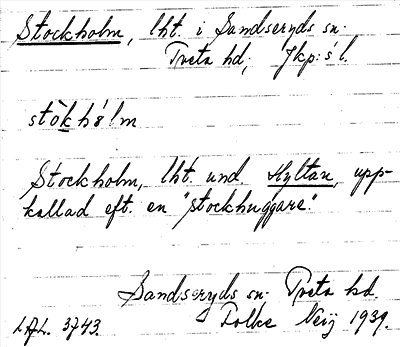 Stockholm, lht. i Sandseryds sn.
Tveta hd, Jkp:s l.
stòkhålm
Stockholm, lht. und. Hyltan, upp-
kallad eft. en "stockhuggare".
Sandseryds sn. Tveta hd.
L.A.L. 3743. Folke Neij 1939.